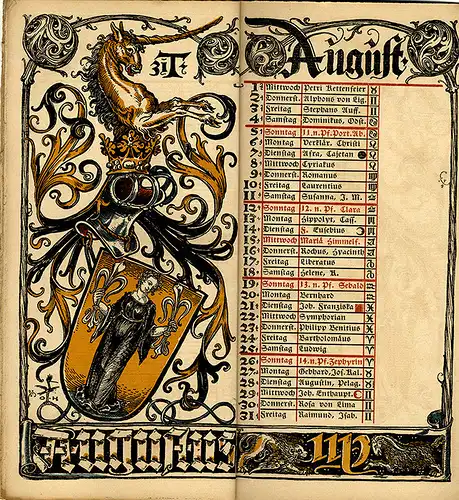 August
1 Mittwoch Petri Kettenfeier
2 Donnerst. Alphons von Lig.
3 Freitag Stephans Auff.
4 Samstag Dominikus, Osk.
5 Sonntag 11. n. Pf. Port. Ab.
6 Montag Verklär. Christi
7 Dienstag Afra, Cajetan
8 Mittwoch Cyriakus
9 Donnerst. Romanus
10 Freitag Laurentius
11 Samstag Susanna, J. M.
12 Sonntag 12. n. Pf. Clara
13 Montag Hippolyt, Cass.
14 Dienstag F. Eusebius
15 Mittwoch Mariä Himmelf.
16 Donnerst. Rochus, Hyacinth
17 Freitag Liberatus
18 Samstag Helene, K.
19 Sonntag 13. n. Pf. Sebald
20 Montag Bernhard
21 Dienstag Joh. Franziska
22 Mittwoch Symphorian
23 Donnerst. Philipp Benitius
24 Freitag Bartholomäus
25 Samstag Ludwig
26 Sonntag 14. n. Pf. Zephyrin
27 Montag Gebhard, Jos. Kal.
28 Dienstag Augustin, Pelag.
29 Mittwoch Joh. Enthaupt.
30 Donnerst. Rosa von Lima
31 Freitag Raimund, Isab.
Augustus